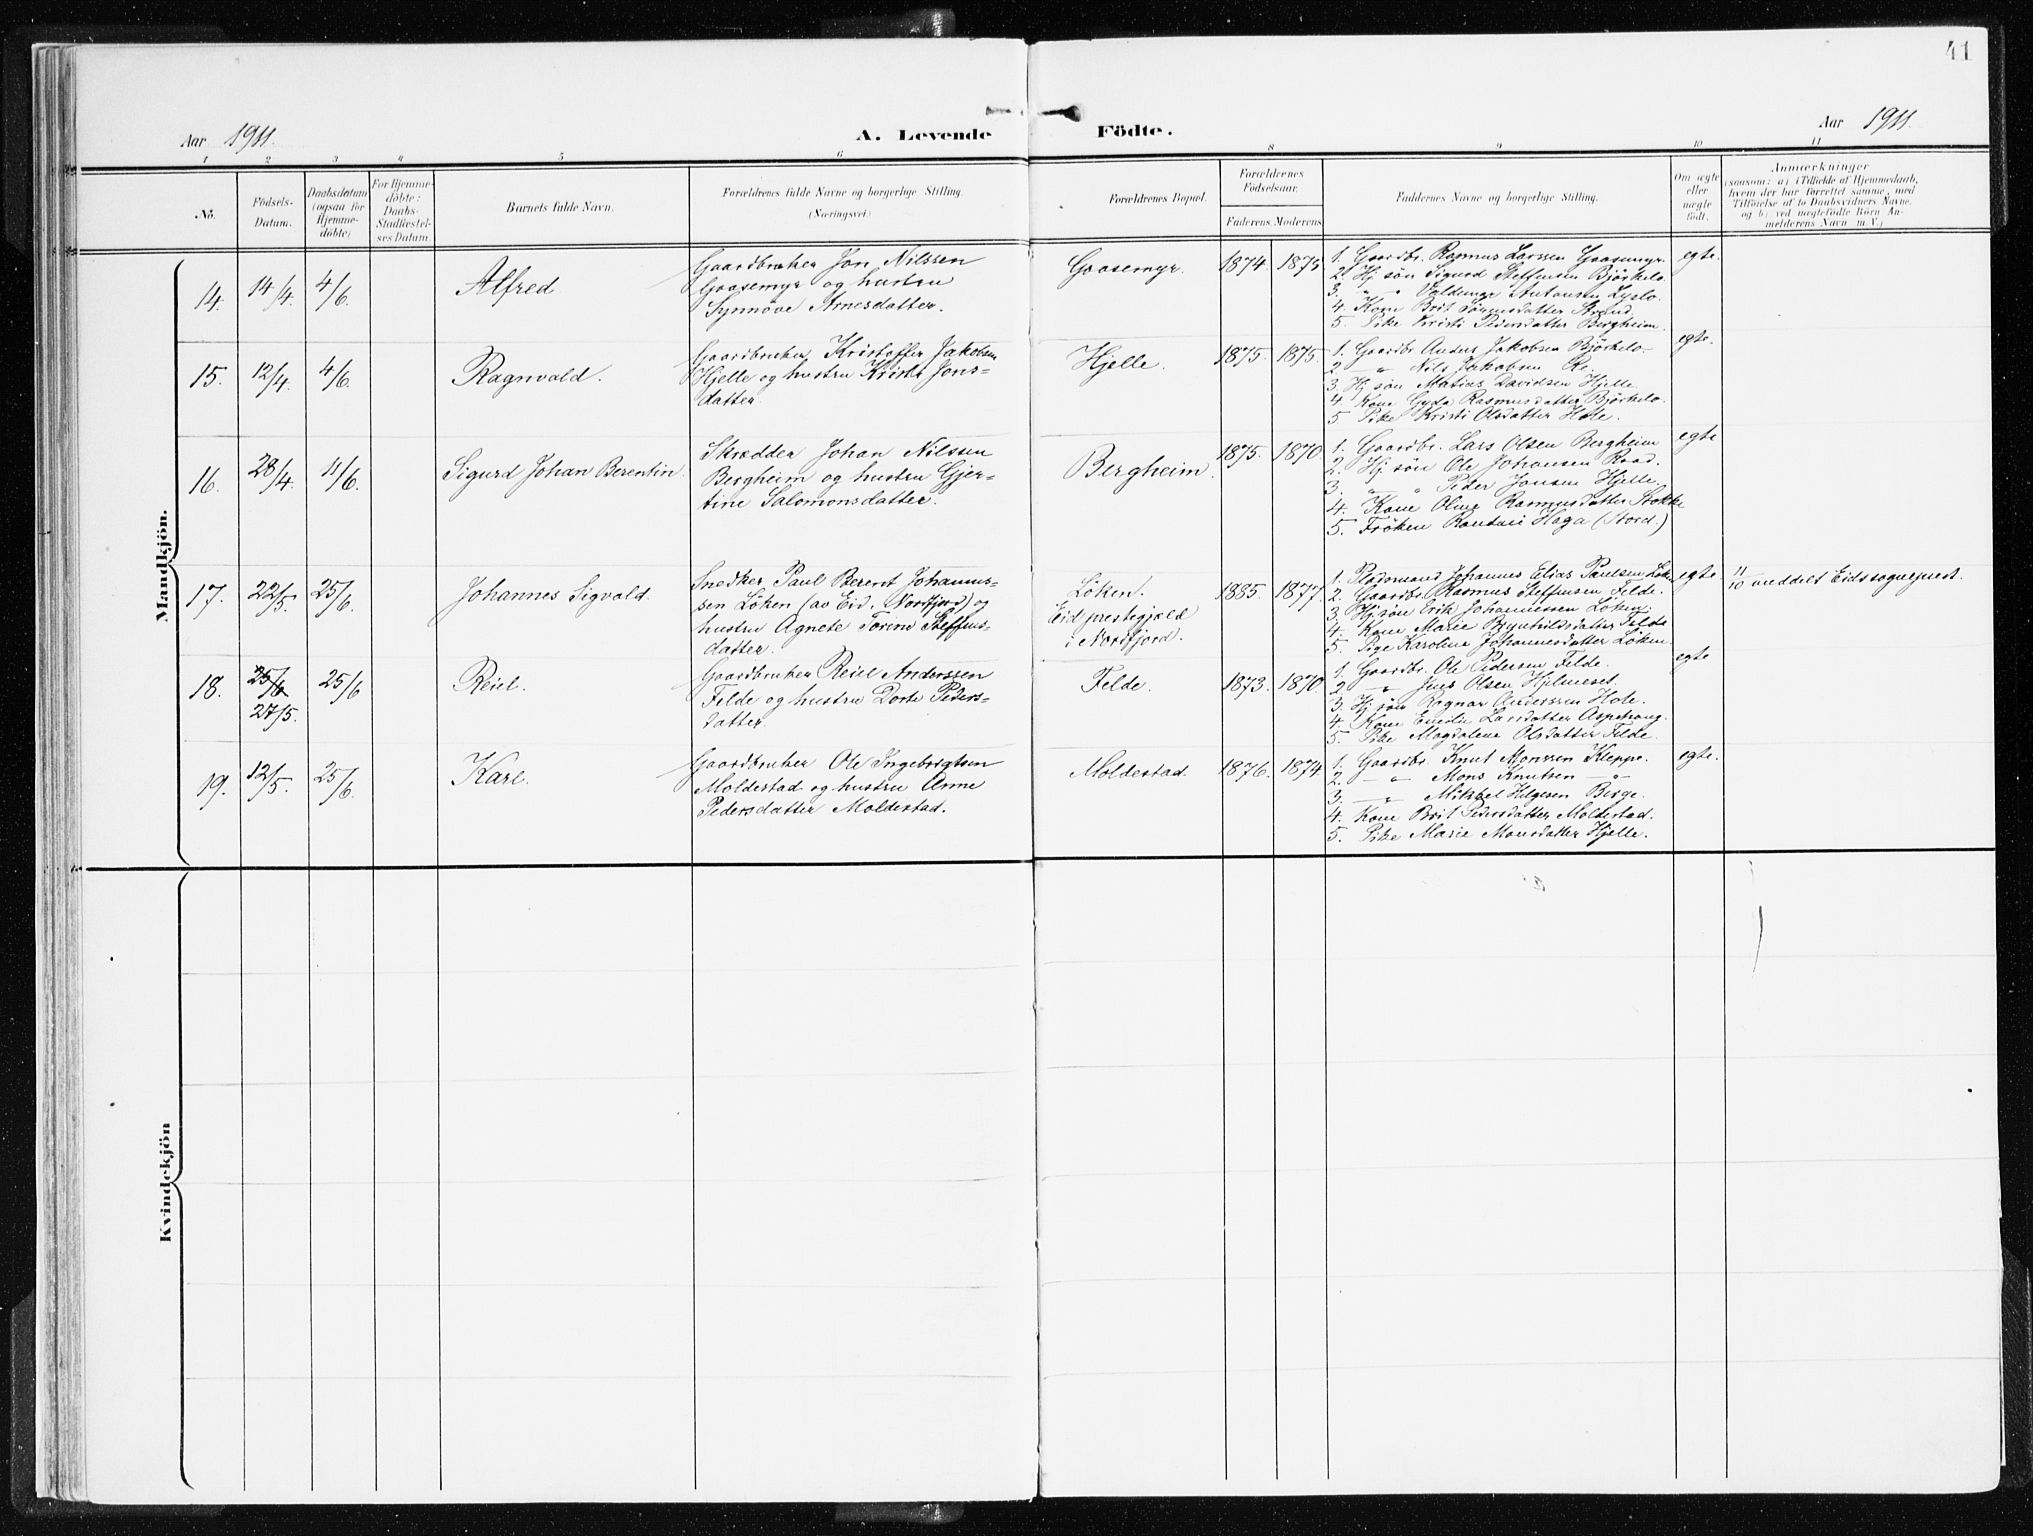 41
Aar 1911.
A. Levende Födte.
Aar 1911.
1 2 3 4 5 6 8 9 10 11
No.
Födsels-
Datum.
Daabsdatum
(ogsaa for
Hjemme-
döbte)
For Hjemme-
döbte:
Daabs-
Stadfæstel-
ses Datum.
Barnets fulde Navn.
Forældrenes fulde Navne og borgerlige Stilling.
(Næringsvei.)
Forældrenes Bopæl.
Forældrenes
Födselsaar.
Faderens. Moderens.
Faddernes Navne og borgerlige Stilling.
Om ægte
eller
uægte
födt.
Anmærkninger
(saasom: a) i Tilfælde af Hjemmedaab,
hvem der har forrettet samme, med
Tilföielse af to Daabsvidners Navne.
og b) ved uægtefödte Börn An-
melderens Navn m. V.)
Mandkjön.
14. 14/4. 4/6. Alfred
Gaardbruker Jon Nilssen
Gaasemyr og hustru
Synnöve Arnesdatter.
Gaasemyr. 1874. 1875
1. Gaardbr. Rasmus Larssen Gaasemyr.
2. Hj. sön Sigurd Steffensen Björkelo.
3. " " Valdemar Antonsen
4. Kone Brit
5. Pike Kristi Pedersdatter Bergheim.
egte.
15. 12/4. 4/6. Ragnvald.
Gaardbruker Kristoffer Jakobsen
Hjelle og hustru Kristi Jons-
datter.
Hjelle. 1875. 1875.
1. Gaardbr. Anders Jakobsen Björkelo.
2. — " Nils Jakobsen Re.
3. Hj. sön Matias Davidsen Hjelle.
4. Kone Gyda Rasmusdatter Björkelo.
5. Pike Kristi Olsdatter Hole.
egte.
16. 28/4. 11/6. Sigurd Johan Berentin.
Skrædder Johan Nilssen
Bergheim og hustru Gjer-
tine Salomonsdatter.
Bergheim. 1875. 1870
1. Gaardbr. Lars Olsen Bergheim
2. Hj. sön Ole Johansen Raad.
3. " " Peder Jonsen Hjelle.
4. Kone Oline Rasmusdatter Stokke
5. Fröken Haga (Stord.)
egte
17. 22/5. 25/6. Johannes Sigvald.
Snedker Paul Berent Johannes-
sen Löken (av Eid i Nordfjord) og
hustru Agnete Torine Steffens-
datter.
Löken.
Eid prestegjæld
i Nordfjord.
1885. 1877
1. Johannes Elias Paulsen Löken
2. Gaardbr. Rasmus Steffensen Felde.
3. Hj. sön Erik Johannessen Löken.
4. Kone Marie Brynhildsdatter Felde
5. Pige Karoline Johannesdatter Löken.
egte
11/10 meddelt Eids sogneprest.
18. 25/6 27/5. 25/6 Reiel.
Gaardbruker Reiel Anderssen
Felde og hustru Dorte Peders-
datter.
Felde. 1873. 1870.
1. Gaardbr. Ole Pedersen Felde.
2. — " Jens Olsen Hjelmeset.
3. Hj. sön Ragnar Anderssen Hole.
4. Kone Emilie Larsdatter Aspehaug.
5. Pike Magdalene Olsdatter Felde.
egte
19. 12/5. 25/6. Karl.
Gaardbruker Ole Ingebrigtsen
Moldestad og hustru Anne
Pedersdatter Moldestad.
Moldestad. 1876. 1874
1. Gaardbr. Knut Monssen Kleppe.
2. — " Mons Knutsen — " —
3. — " Mikkel Helgesen Berge.
4. Kone Brit Pedersdatter Moldestad.
5. Pike Marie Monsdatter Hjelle.
egte.
Kvindekjön